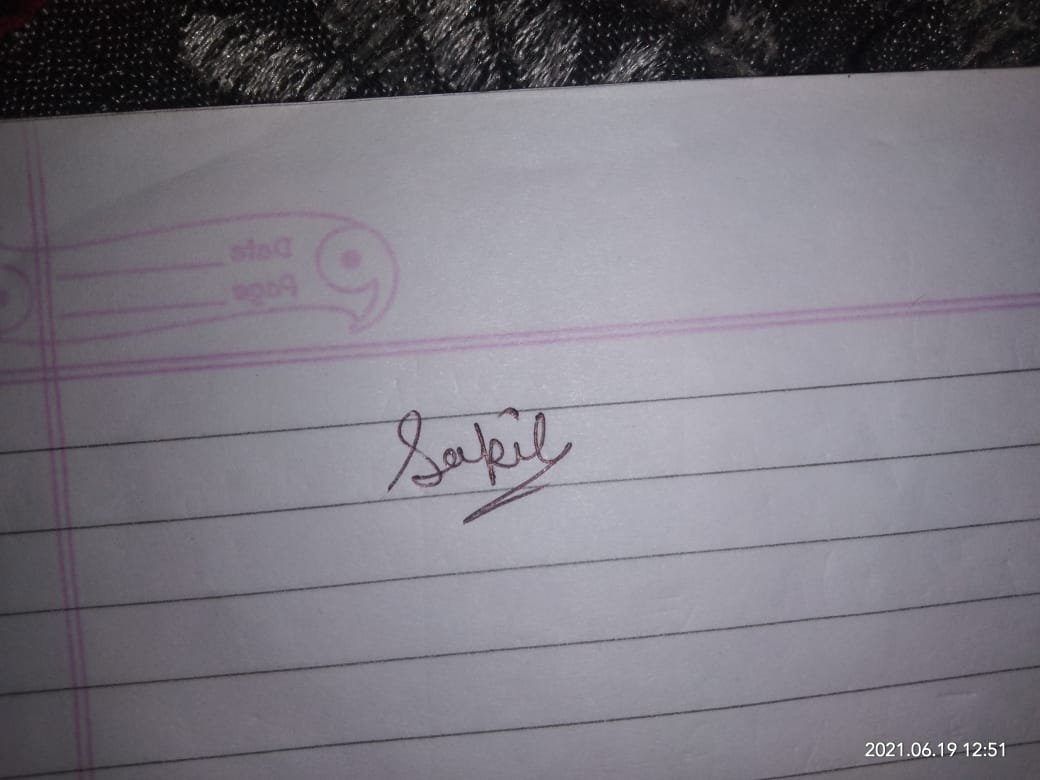 Date
Page
Sakil
2021.06.19 12:51